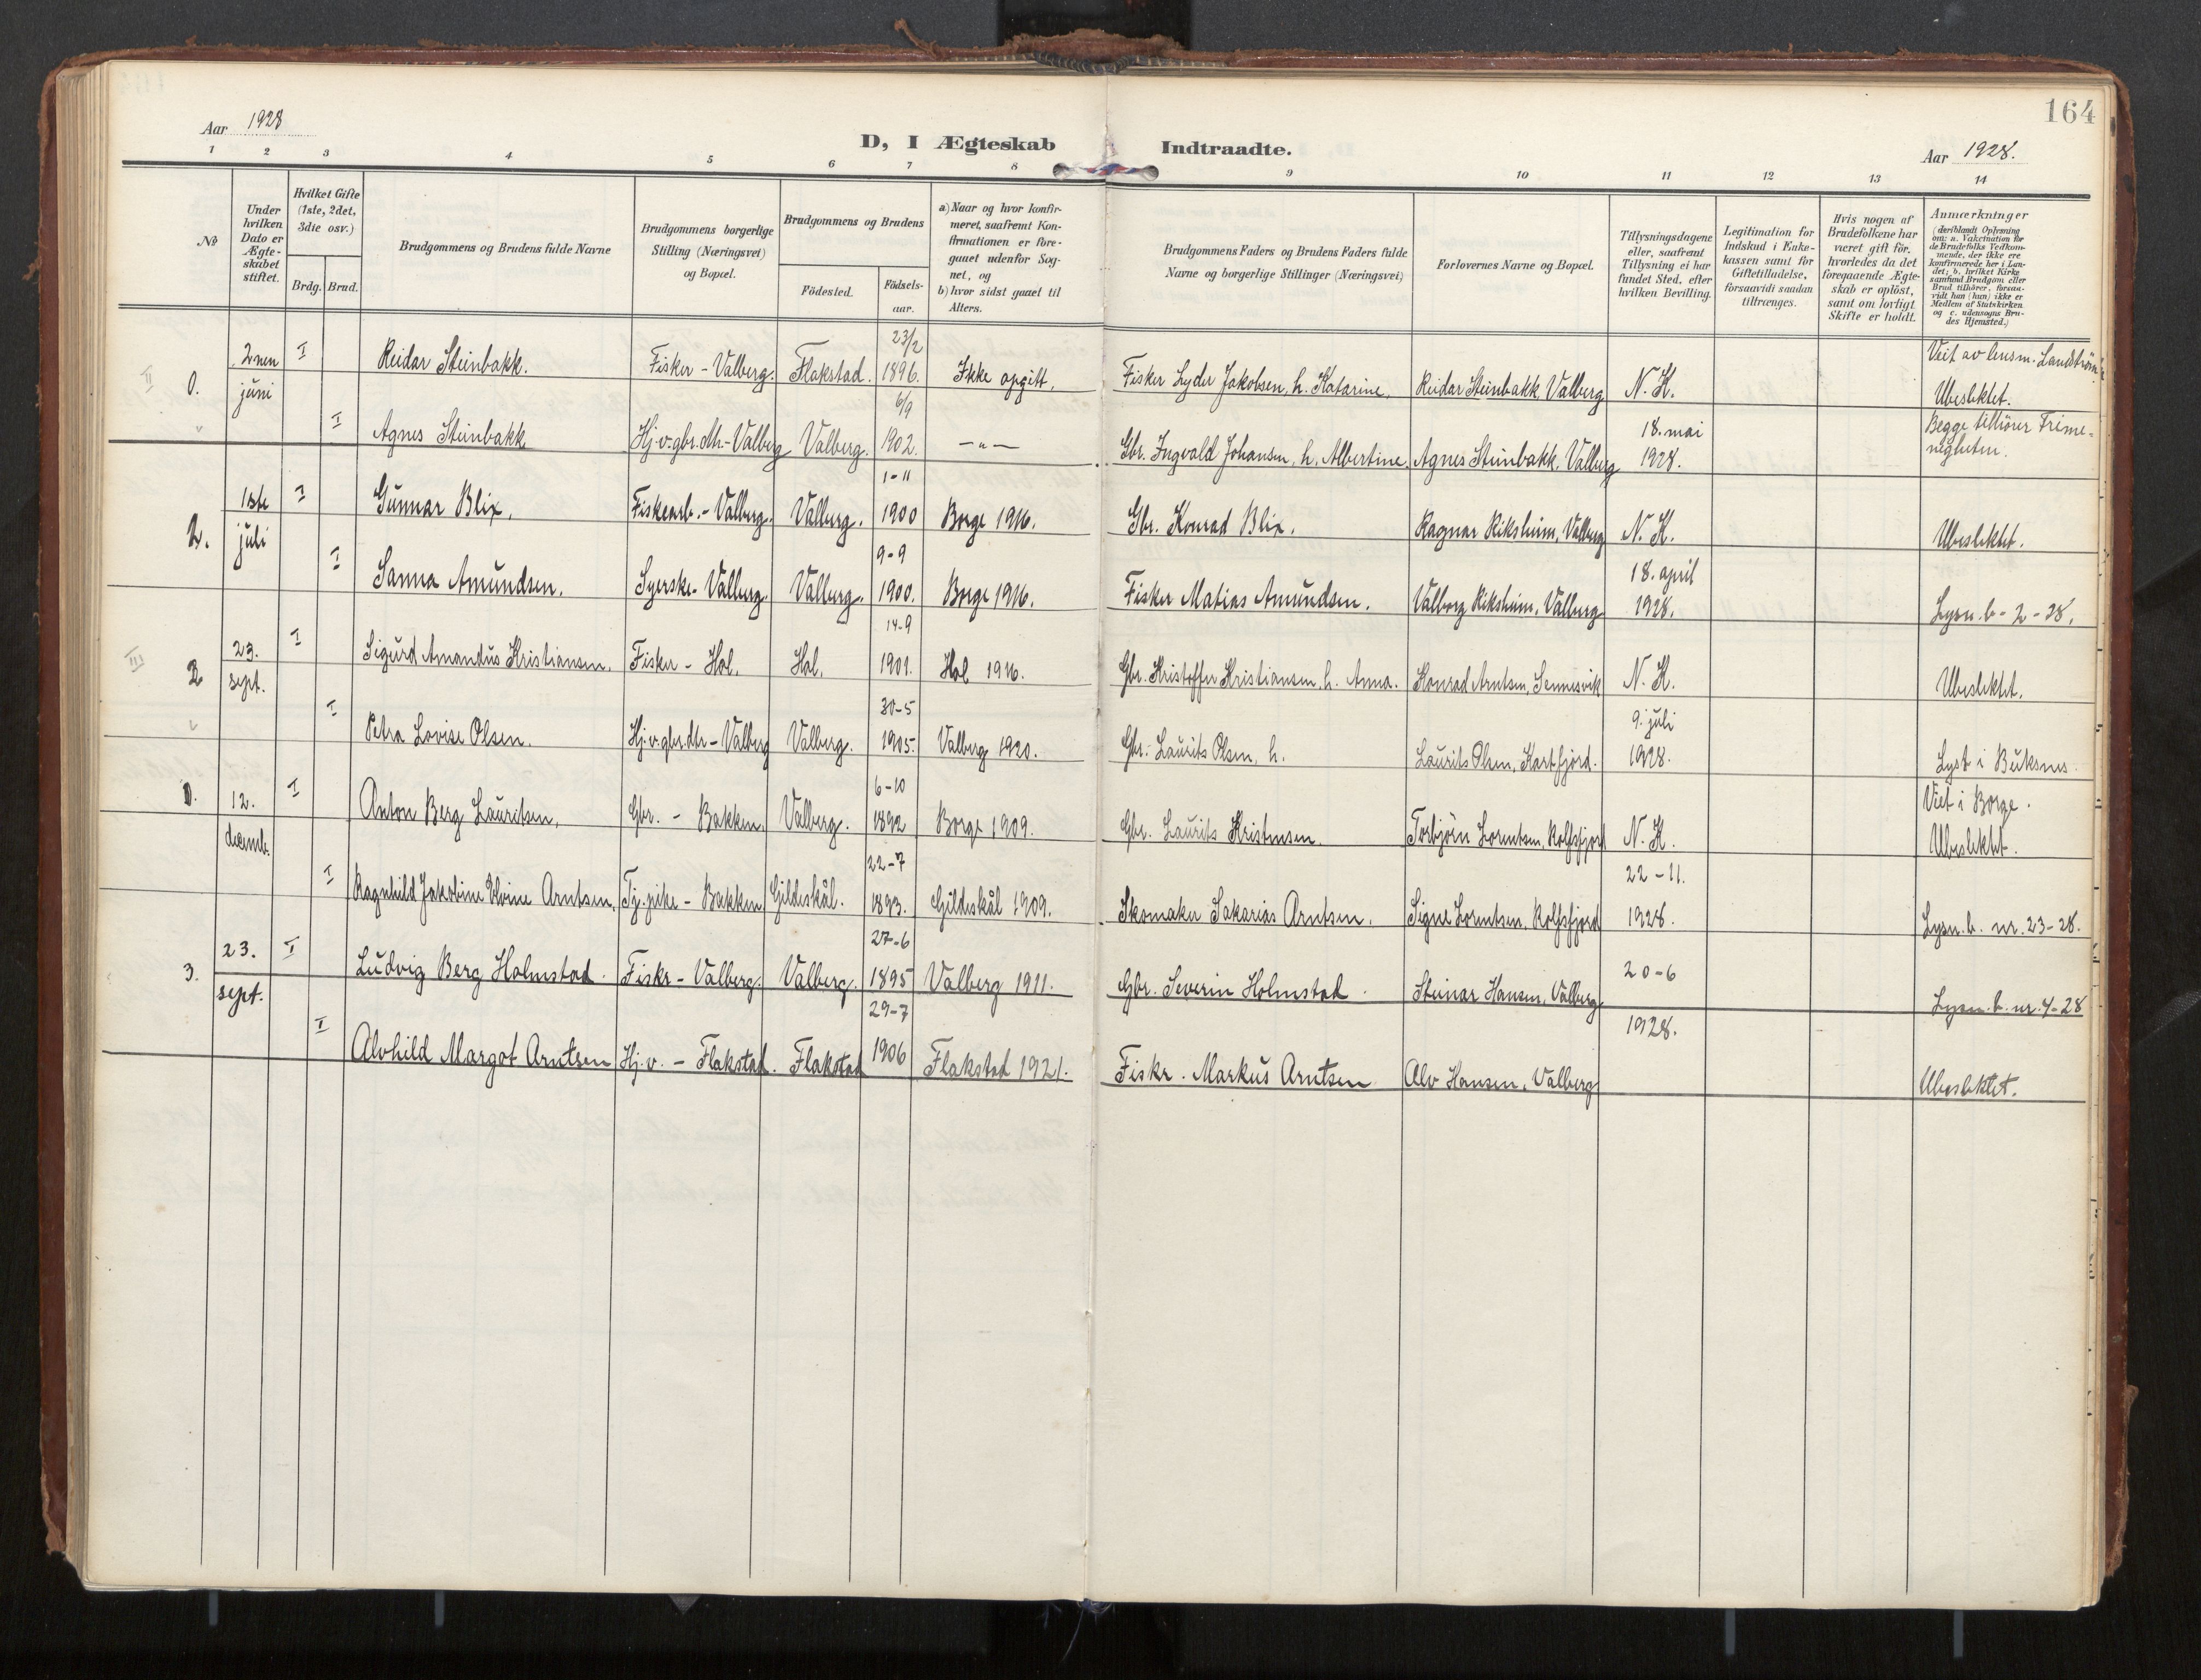 164
Aar 1928
D, I Ægteskab Indtraadte.
Aar 1928.
1 2 3 4 5 6 7 8 9 10 11 12 13 14
№
Under
hvilken
Dato er
Ægte-
skabet
stiftet.
Hvilket Gifte
(1ste, 2det,
3die osv.)
Brdg. Brud.
Brudgommens og Brudens fulde Navne
Brudgommens borgerlige
Stilling (Næringsvei)
og Bopæl.
Brudgommens og Brudens
Födested.
Födsels-
aar.
a) Naar og hvor konfir-
meret, saafremt Kon-
firmationen er fore-
gaaet udenfor Sog-
net, og
b) hvor sidst gaaet til
Alters.
Brudgommens Faders og Brudens Faders fulde
Navne og borgerlige Stillinger (Næringsvei)
Forlovernes Navne og Bopæl.
Tillysningsdagene
eller, saafremt
Tillysning ei har
fundet Sted, efter
hvilken Bevilling.
Legitimation for
Indskud i Enke-
kassen samt for
Giftetilladelse,
forsaavidt saadan
tiltrænges.
Hvis nogen af
Brudefolkene har
været gift för,
hvorledes da det
foregaaende Ægte-
skab er oplöst,
samt om lovligt
Skifte er holdt.
Anmærkninger
(deriblandt Oplysning
om: a. Vakcination for
de Brudefolks Vedkom-
mende, der ikke ere
konfirmerede her i Lan-
det; b. hvilket Kirke
samfund Brudgom eller
Brud tilhörer, forsaa-
vidt han (hun) ikke er
Medlem af Statskirken
og c. udensogns Bru-
des Hjemsted.)
II 0. 2nen juni I Reidar Steinbakk. Fisker - Valberg. Flakstad. 23/2 1896. Ikke opgitt. Fisker Lyder Jakobsen, h. Katarine. Reidar Steinbakk, Valberg N. K. Viet av husm. Landström
Ubeslektet.
I Agnes Steinbakk Hj.v. gbr.dtr.- Valberg Valberg. 6/9 1902. —"— Gbr. Ingvald Johansen, h. Albertine. Agnes Steinbakk, Valberg 18. mai 1928. Begge tilhörer Frime-
nigheten.
2. 1ste juli I Gunnar Blix. Fiskearb.- Valberg. Valberg. 1-11 1900 Borge 1916. Gbr. Konrad Blix. Ragnar Riksheim, Valberg N. K. Ubeslektet.
I Sanna Amundsen. Syerske- Valberg. Valberg. 9-9 1900. Borge 1916. Fisker Matias Amundsen. Valborg Riksheim, Valberg 18. april 1928. Lysn. b - 2 - 28.
III 2 23. sept. I Sigurd Amandus Kristiansen. Fisker - Hol. Hol. 14-9 1901. Hol 1916. Gbr. Kristoffer Kristiansen, h. Anna. Konrad Arntsen, Sennesvik N. K. Ubeslektet.
I Petra Lovise Olsen. Hj.v. gbr.dtr - Valberg Valberg. 30-5 1905. Valberg 1920. Gbr. Laurits Olsen, h. Laurits Olsen, Kartfjord. 9. juli 1928. Lyst i Buksnes.
1. 12. decemb. I Anton Berg Lauritsen. Gbr. - Bakken. Valberg. 6-10 1892 Borge 1909. Gbr. Laurits Kristensen. Torbjörn Lorentsen, Rolfsfjord N. K. Viet i Borge.
Ubeslektet.
I Ragnhild Jakobine Elvine Arntsen. Tj.pike - Bakken Gildeskål. 22-7 1893. Gildeskål 1909. Skomaker Sakarias Arntsen. Signe Lorentsen, Rolfsfjord 22-11. 1928. Lysn. b. nr. 23-28.
3. 23. sept. I Ludvig Berg Holmstad. Fiskr - Valberg. Valberg. 27-6 1895 Valberg 1911. Gbr. Severin Holmstad. Steinar Hansen, Valberg 20-6 Lysn. b. nr. 4-28
I Alvhild Margot Arntsen Hj.v. - Flakstad. Flakstad 29-7 1906 Flakstad 1921. Fiskr. Markus Arntsen Alv Hansen, Valberg 1928. Ubeslektet.